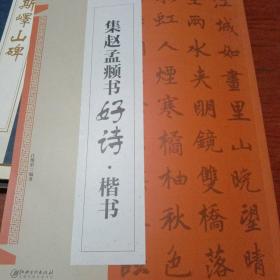 斯嶧山碑
集赵孟頫书
好诗·楷书
江城如畫裏山晚望晴
空兩水夾明鏡雙橋落
虹人煙寒橘柚秋色